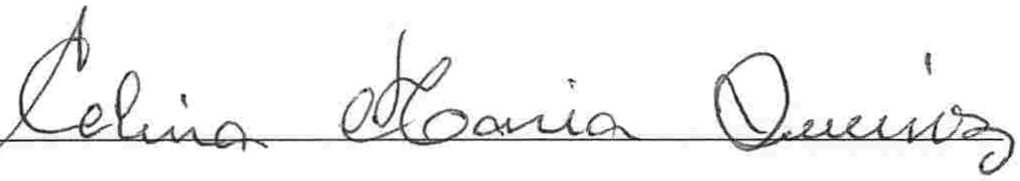 Celina Maria Queiroz